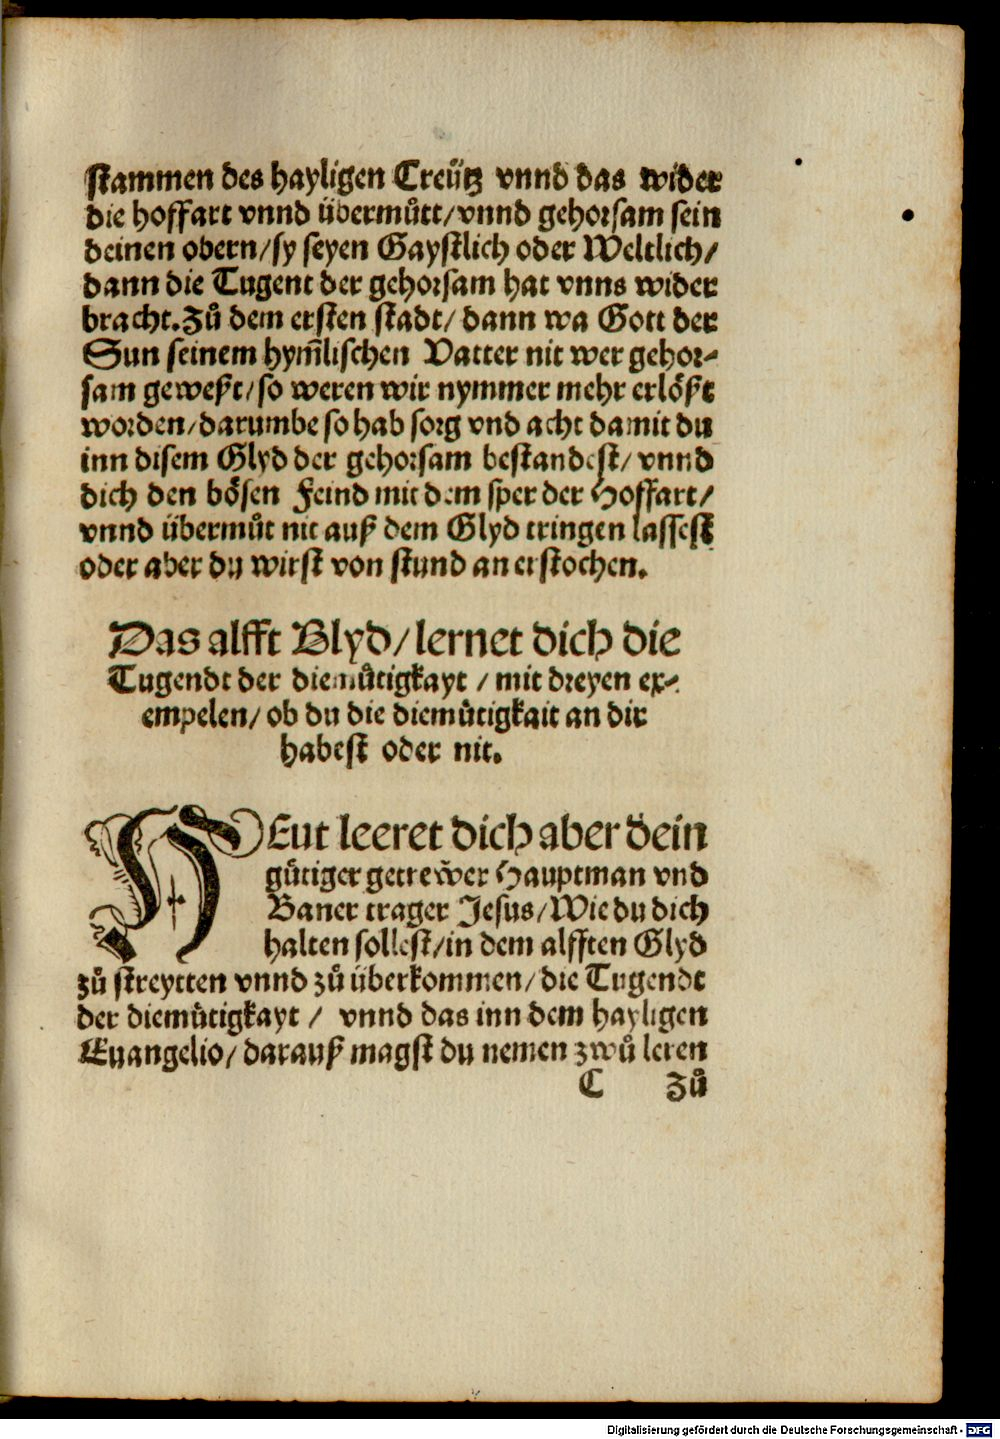 stammen des hayligen Creütz vnnd das wider
die hoffart vnnd übermůtt/ vnnd gehorsam sein
deinen obern/ sy seyen Gaystlich oder Weltlich/
dann die Tugent der gehorsam hat vnns wider
bracht. Zů dem ersten stadt/ dann wa Gott der
Sun seinem hym̃lischen Vatter nit wer gehor-
sam geweßt/ so weren wir nymmer mehr erlößt
worden/ darumbe so hab sorg vnd acht damit du
inn disem Glyd der gehorsam bestandest/ vnnd
dich den bösen Feind mit dem sper der Hoffart/
vnnd übermůt nit auß dem Glyd tringen lassest
oder aber du wirst von stund an erstochen.
Das alfft Glyd/ lernet dich die
Tugendt der diemůtigkayt / mit dreyen ex-
empelen/ ob du die diemůtigkait an dir
habest oder nit.
HEut leeret dich aber dein
gůtiger getrewer Hauptman vnd
Baner trager Jesus/ Wie du dich
halten sollest/ in dem alfften Glyd
zů streytten vnnd zů überkommen/ die Tugendt
der diemůtigkayt / vnnd das inn dem hayligen
Euangelio/ darauß magst du nemen zwů leren
C Zů
Digitalisierung gefördert durch die Deutsche Forschungsgemeinschaft - DFG